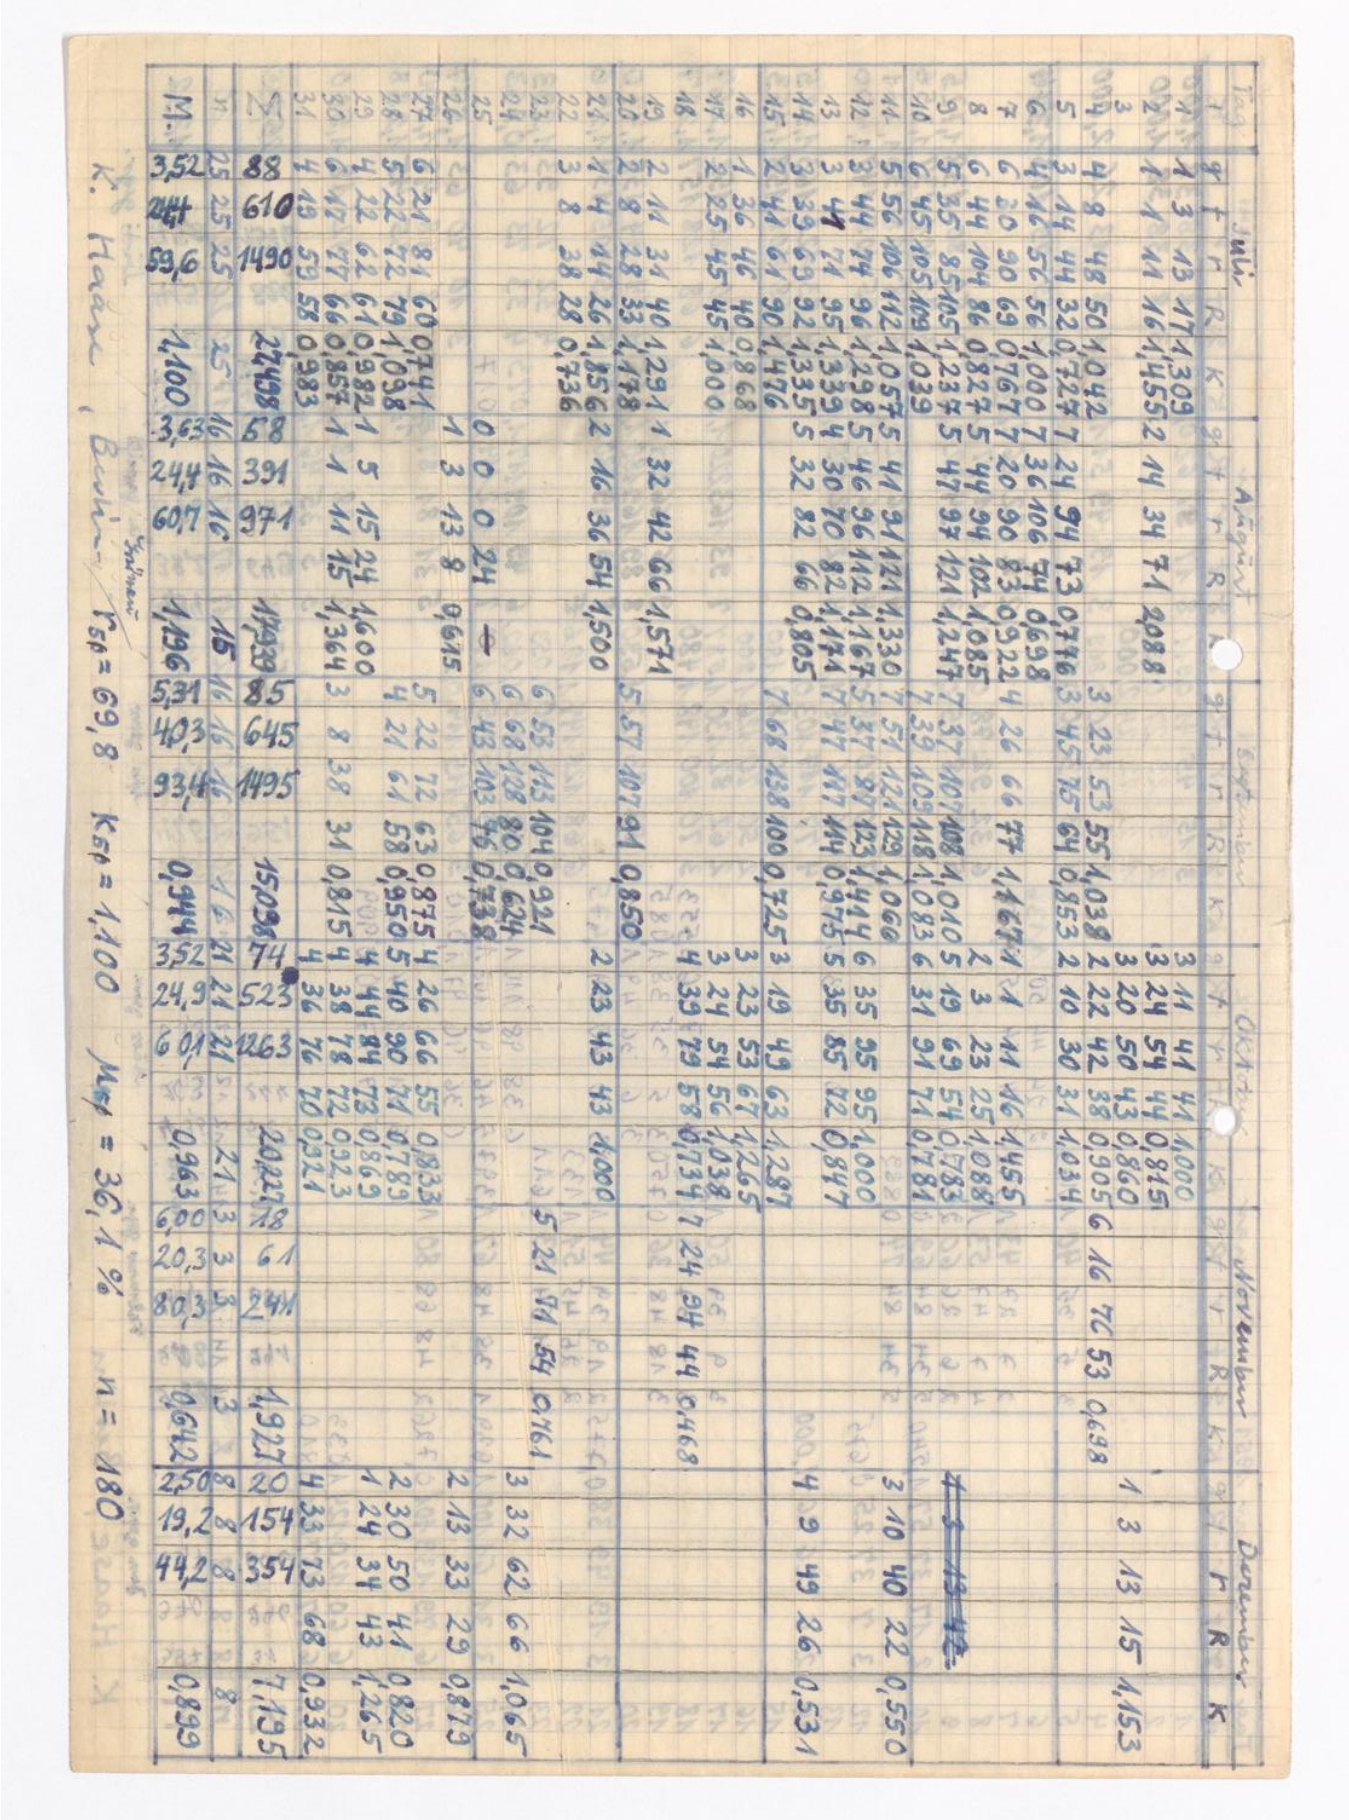 Tag Juli August September Oktober November Dezember
g f r R K g f r R K g f r R K g f r R K g f r R K g f r R K
1 1 3 13 17 1,309 3 11 41 41 1,000
2 1 1 11 16 1,455 2 14 34 71 2,088 3 24 54 44 0,815
3 3 20 50 43 0,860 1 3 13 15 1,153
4 4 8 48 50 1,042 3 23 53 55 1,038 2 22 42 38 0,905 6 16 76 53 0,698
5 3 14 44 32 0,727 7 24 94 73 0,776 3 45 75 64 0,853 2 10 30 31 1,034
6 4 16 56 56 1,000 7 36 106 74 0,698
7 6 20 90 69 0,767 7 20 90 83 0,922 4 26 66 77 1,167 1 1 11 16 1,455
8 6 44 104 86 0,827 5 44 94 102 1,085 2 3 23 25 1,088
9 5 35 85 105 1,237 5 47 97 121 1,247 7 37 107 108 1,010 5 19 69 54 0,783 1 3 13 42
10 6 45 105 109 1,039 7 39 109 118 1,083 6 31 91 71 0,781
11 5 56 106 112 1,057 5 41 91 121 1,330 7 51 121 129 1,066 3 10 40 22 0,550
12 3 44 74 96 1,298 5 46 96 112 1,167 5 37 87 123 1,414 6 35 95 95 1,000
13 3 41 71 95 1,339 4 30 70 82 1,171 7 47 117 114 0,975 5 35 85 72 0,847
14 3 39 69 92 1,335 5 32 82 66 0,805 4 9 49 26 0,531
15 2 41 61 90 1,476 7 68 138 100 0,725 3 19 49 63 1,287
16 1 36 46 40 0,868 3 23 53 67 1,265
17 2 25 45 45 1,000 3 24 54 56 1,038
18 4 39 79 58 0,734 7 24 94 44 0,468
19 2 11 31 40 1,291 1 32 42 66 1,571
20 2 8 28 33 1,178 5 57 107 91 0,850
21 1 4 14 26 1,856 2 16 36 54 1,500 2 23 43 43 1,000
22 3 8 38 28 0,736
23 6 53 113 104 0,921 5 21 71 54 0,761
24 6 68 128 80 0,624 3 32 62 66 1,065
25 0 0 0 24 – 6 43 103 76 0,738
26 1 3 13 8 0,615 2 13 33 29 0,879
27 6 21 81 60 0,741 5 22 72 63 0,875 4 26 66 55 0,833
28 5 22 72 79 1,098 4 21 61 58 0,950 5 40 90 71 0,789 2 30 50 41 0,820
29 4 22 62 61 0,982 1 5 15 24 1,600 4 44 84 73 0,869 1 24 34 43 1,265
30 6 17 77 66 0,857 1 1 11 15 1,364 3 8 38 31 0,815 4 38 78 72 0,923
31 4 19 59 58 0,983 4 36 76 70 0,921 4 33 73 68 0,932
Σ 88 610 1490 27,498 58 391 971 17,939 85 645 1495 15,098 74 523 1263 20,227 18 61 241 1,927 20 154 354 7,195
n 25 25 25 25 16 16 16 15 16 16 16 16 21 21 21 21 3 3 3 3 8 8 8 8
M. 3,52 24,4 59,6 1,100 3,63 24,4 60,7 1,196 5,31 40,3 93,4 0,944 3,52 24,9 60,1 0,963 6,00 20,3 80,3 0,642 2,50 19,2 44,2 0,899
K. Haase, Berlin / r = 69,8 K = 1,100 M = 36,1 % n = 180